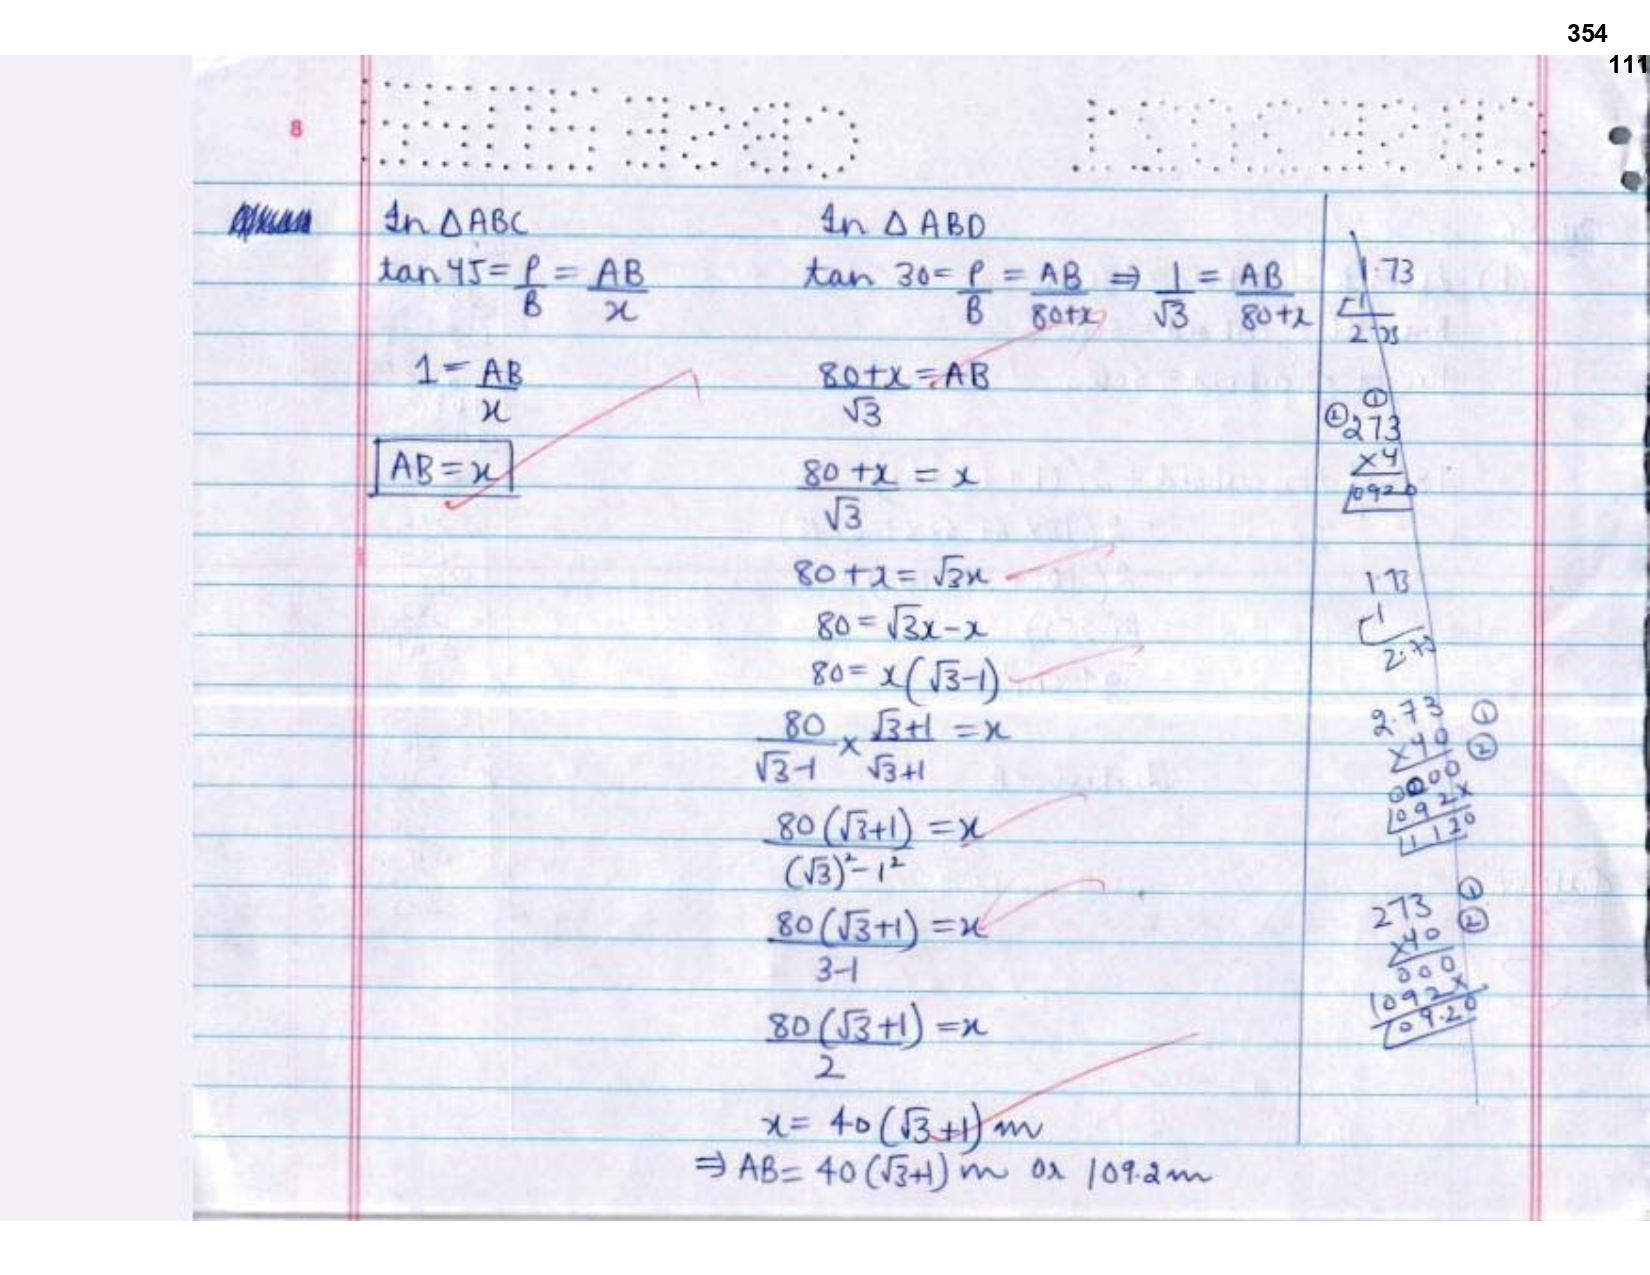 354
111
8
In △ABC
tan 45 = P/B = AB/x
1 = AB/x
AB = x
In △ABD
tan 30 = P/B = AB/80+x ⇒ 1/√3 = AB/80+x
80+x/√3 = AB
80+x/√3 = x
80+x = √3x
80 = √3x-x
80 = x(√3-1)
80/√3-1 × √3+1/√3+1 = x
80(√3+1)/(√3)²-1² = x
80(√3+1)/3-1 = x
80(√3+1)/2 = x
x = 40(√3+1) m
⇒ AB = 40(√3+1) m or 109.2 m
1.73
1
2.73
①
②273
×4
1092
1.73
1
2.73
2.73 ①
×40 ②
000
1092×
11120
273 ①
×40 ②
000
1092×
109.20